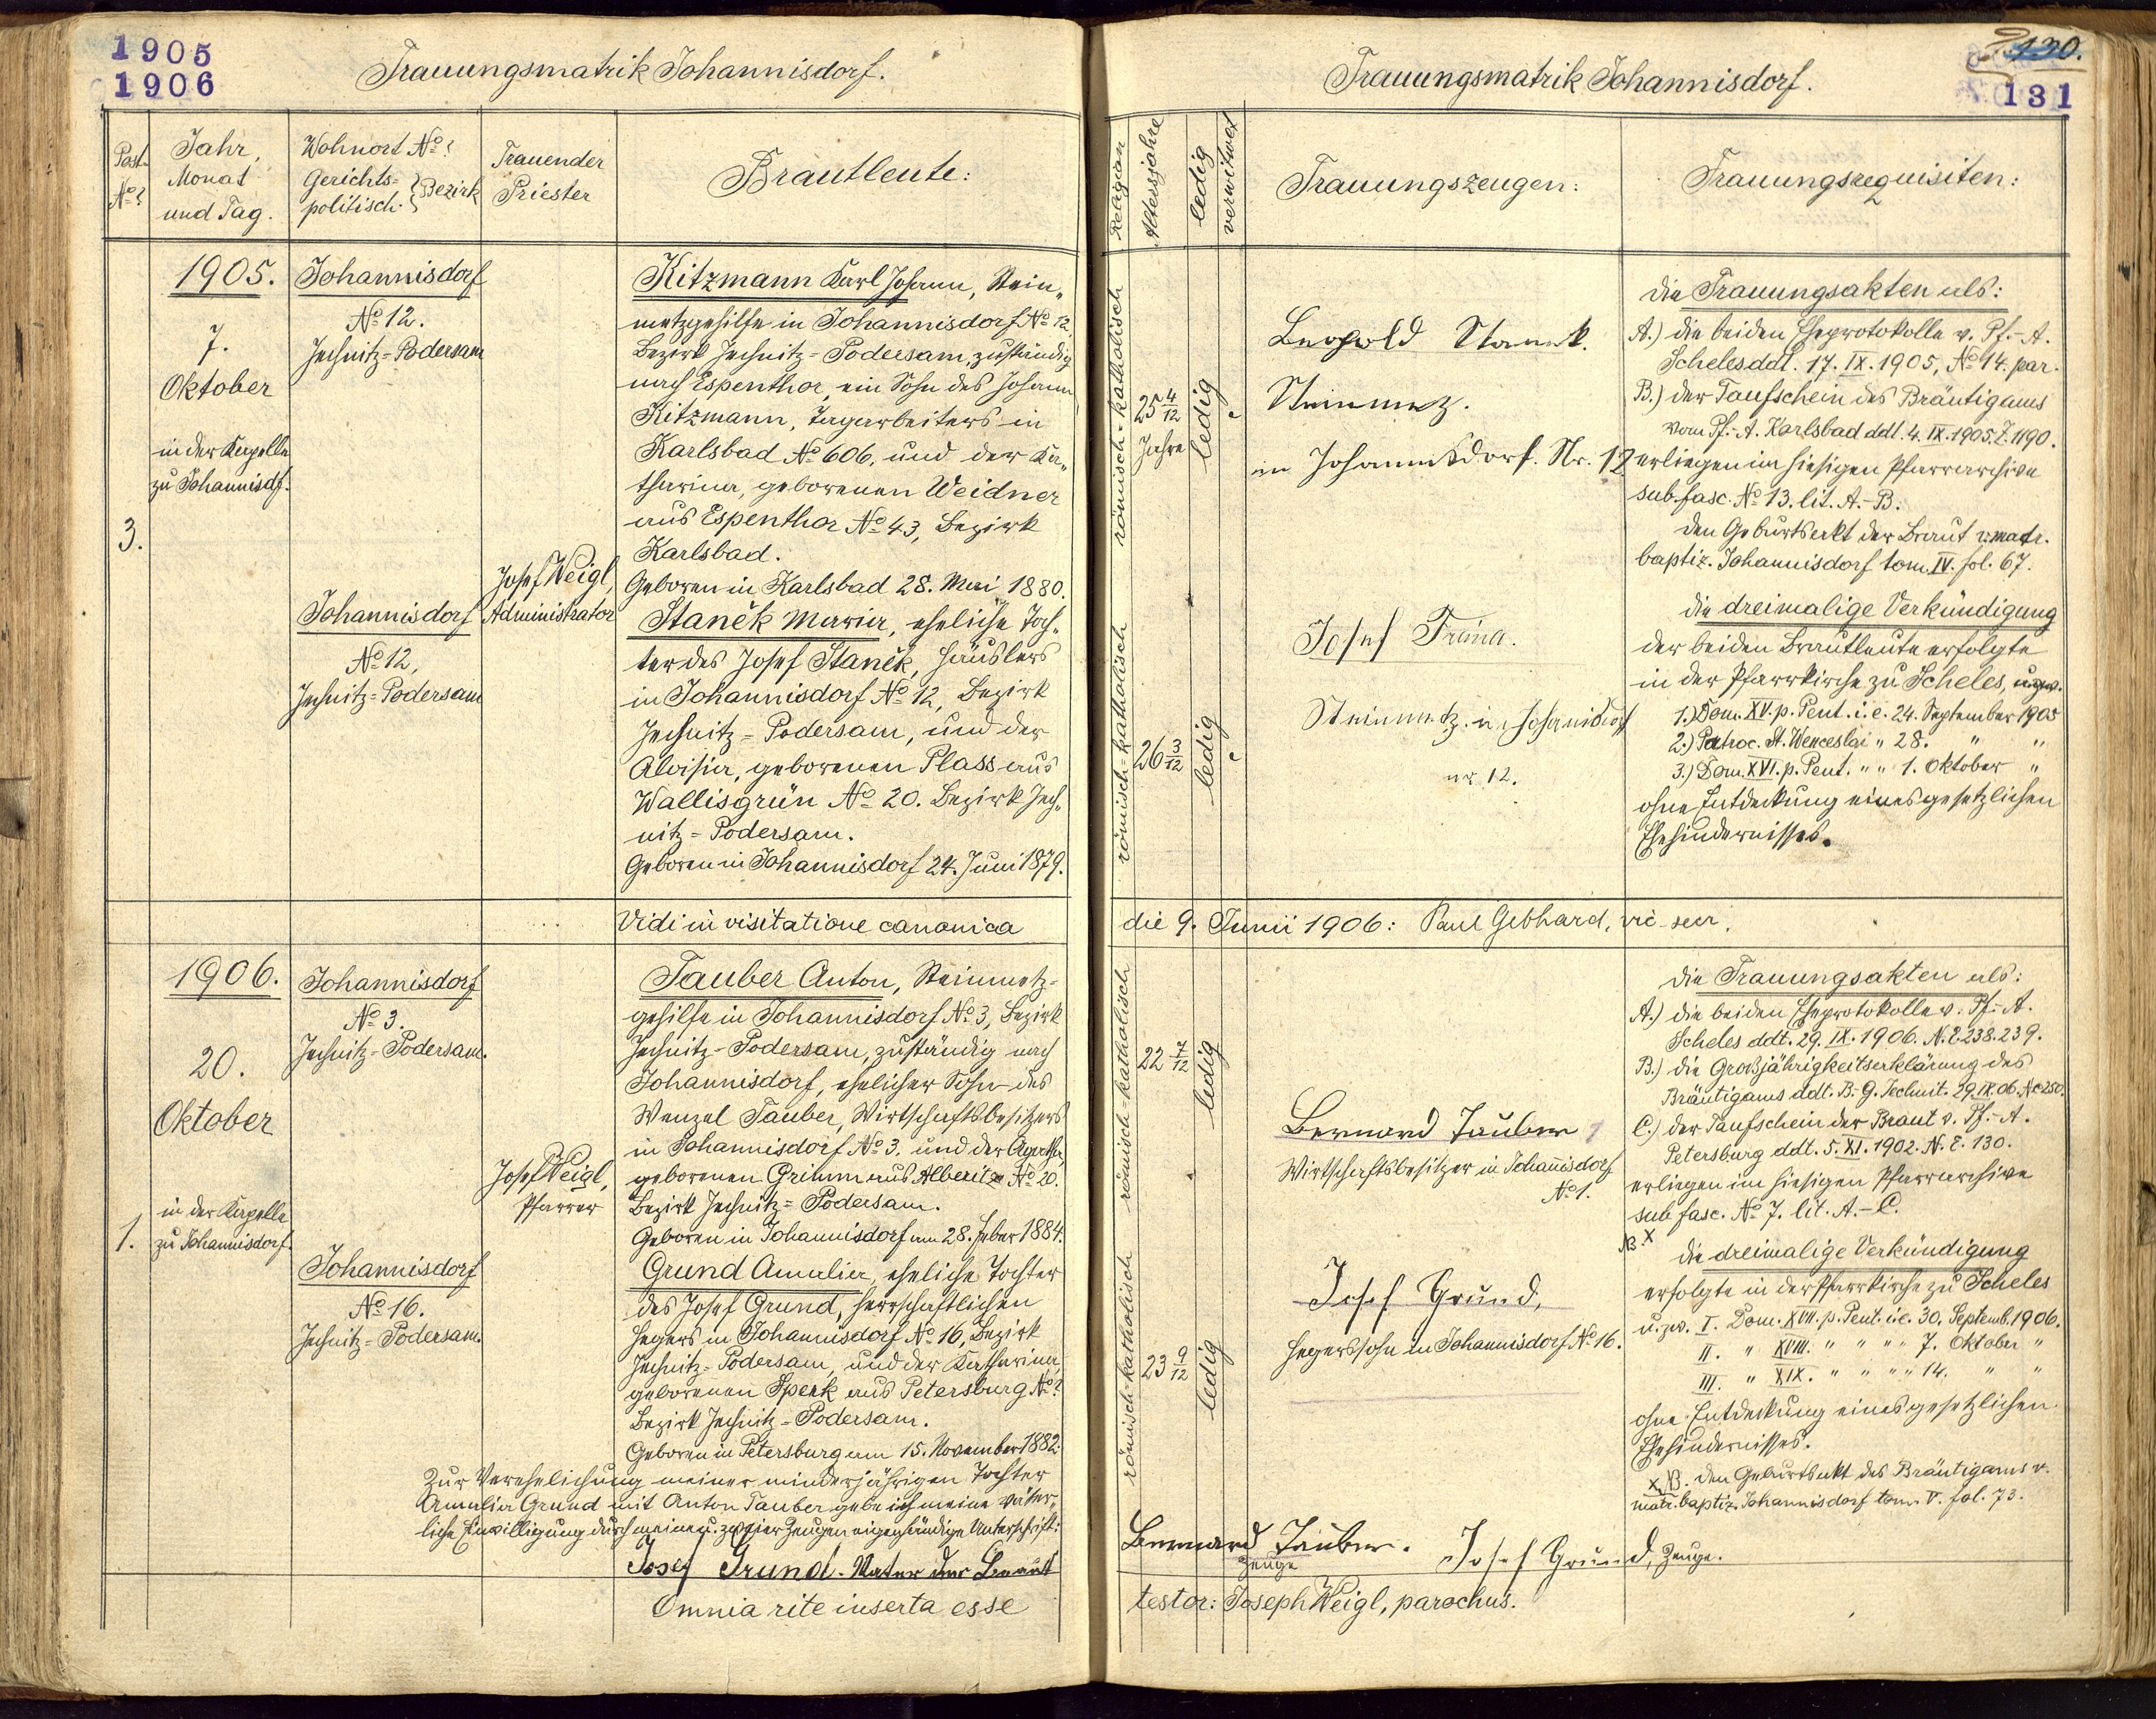 1905
1906
Trauungsmatrik Johannisdorf.
Post-
No
Jahr,
Monat
und Tag.
Wohnort No
Gerichts-
politisch. } Bezirk
Trauender
Priester
Brautleute:
1905.
7.
Oktober
in der Kapelle
zu Johannisdf.
3.
Johannisdorf
No 12.
Jechnitz=Podersam
Johannisdorf
No 12,
Jechnitz=Podersam
Josef Weigl,
Administrator
Kitzmann Karl Johann, Stein„
metzgehilfe in Johannisdorf No 12
Bezirk Jechnitz=Podersam, zuständig
nach Espenthor, ein Sohn des Johann
Kitzmann, Tagarbeiters in
Karlsbad No 606, und der Ka„
tharina, geborenen Weidner
aus Espenthor No 43, Bezirk
Karlsbad.
Geboren in Karlsbad 28. Mai 1880.
Staněk Maria, eheliche Toch„
ter des Josef Staněk, Häuslers
in Johannisdorf No 12, Bezirk
Jechnitz=Podersam, und der
Aloisia, geborenen Plass aus
Wallisgrün No 20. Bezirk Jech„
nitz=Podersam.
Geboren in Johannisdorf 24. Juni 1879.
Vidi in visitatione canonica
1906.
20.
Oktober
in der Kapelle
zu Johannisdorf.
1.
Johannisdorf
No 3.
Jechnitz=Podersam.
Johannisdorf
No 16.
Jechnitz=Podersam.
Josef Weigl,
Pfarrer
Tauber Anton, Steinmetz-
gehilfe in Johannisdorf No 3, Bezirk
Jechnitz=Podersam, zuständig nach
Johannisdorf, ehelicher Sohn des
Wenzel Tauber, Wirtschaftsbesitzers
in Johannisdorf No 3. und der Agatha,
geborenen Grimm aus Alberitz No 20.
Bezirk Jechnitz=Podersam.
Geboren in Johannisdorf am 28. Feber 1884.
Grund Amalia, eheliche Tochter
des Josef Grund, herrschaftlichen
Hegers in Johannisdorf No 16, Bezirk
Jechnitz=Podersam, und der Katharina,
geborenen Sperk aus Petersburg No ?
Bezirk Jechnitz=Podersam.
Geboren in Petersburg am 15. November 1882.
Zur Verehelichung meiner minderjährigen Tochter
Amalia Grund mit Anton Tauber gebe ich meine väter„
liche Einwilligung durch meine u. zweier Zeugen eigenhändige Unterschrift:
Josef Grund. Vater der Braut
Omnia rite inserta esse
130.
131
Trauungsmatrik Johannisdorf.
Religion
Altersjahre
ledig
verwitwet
Trauungszeugen:
Trauungsrequisiten:
römisch=katholisch
25 4/12
Jahre
ledig
römisch=katholisch
26 3/12
ledig
Leopold Stanek.
Steinmez.
in Johannisdorf. Nr. 12
Josef
Steinmetz in Johanisdorf
nr 12.
Die Trauungsakten als:
A.) die beiden Eheprotokolle v. Pf.-A.
Scheles ddt. 17. IX. 1905, No 14. par.
B.) der Taufschein des Bräutigams
vom Pf.-A. Karlsbad ddt. 4. IX. 1905. Z. 1190.
erliegen im hiesigen Pfarrarchive
sub. fasc. No 13. lit. A.-B.
Den Geburtsakt der Braut v. matr.
baptiz. Johannisdorf tom. IV. fol. 67.
Die dreimalige Verkündigung
der beiden Brautleute erfolgte
in der Pfarrkirche zu Scheles, u. zw.
1.) Dom. XV. p. Pent. i. e. 24. September 1905
2.) Patroc. St. Wenceslai „ 28. „ „
3.) Dom. XVI. p. Pent. „ „ 1. Oktober „
ohne Entdeckung eines gesetzlichen
Ehehindernisses.
die 9. Junii 1906: Paul Gebhard, vic. secr.
römisch=katholisch
22 7/12
ledig
römisch=katholisch
23 9/12
ledig
Bernard Tauber
Wirtschaftsbesitzer in Johannisdorf
No 1.
Josef Grund,
Hegerssohn in Johannisdorf No 16.
Die Trauungsakten als:
A.) die beiden Eheprotokolle v. Pf.-A.
Scheles ddt. 29. IX. 1906. N.E. 238. 239.
B.) die Großjährigkeitserklärung des
Bräutigams ddt. B.-G. Jechnit. 29. IX. 06.
C.) der Taufschein der Braut v. Pf.-A.
Petersburg ddt. 5. XI. 1902. N. E. 130.
erliegen im hiesigen Pfarrarchive
sub fasc. No 7. lit. A.-C.
NB. x
Die dreimalige Verkündigung
erfolgte in der Pfarrkirche zu Scheles
u. zw. I. Dom. XVII. p. Pent. i. e. 30. Septemb. 1906.
II. „ XVIII. „ „ „ „ 7. Oktober „
III. „ XIX. „ „ „ „ 14. „ „
ohne Entdeckung eines gesetzlichen
Ehehindernisses.
x NB. Den Geburtsakt des Bräutigams v.
matr. baptiz. Johannisdorf tom. V. fol. 73.
Bernard Tauber.
Zeuge
Josef Grund, Zeuge.
testor: Joseph Weigl, parochus.